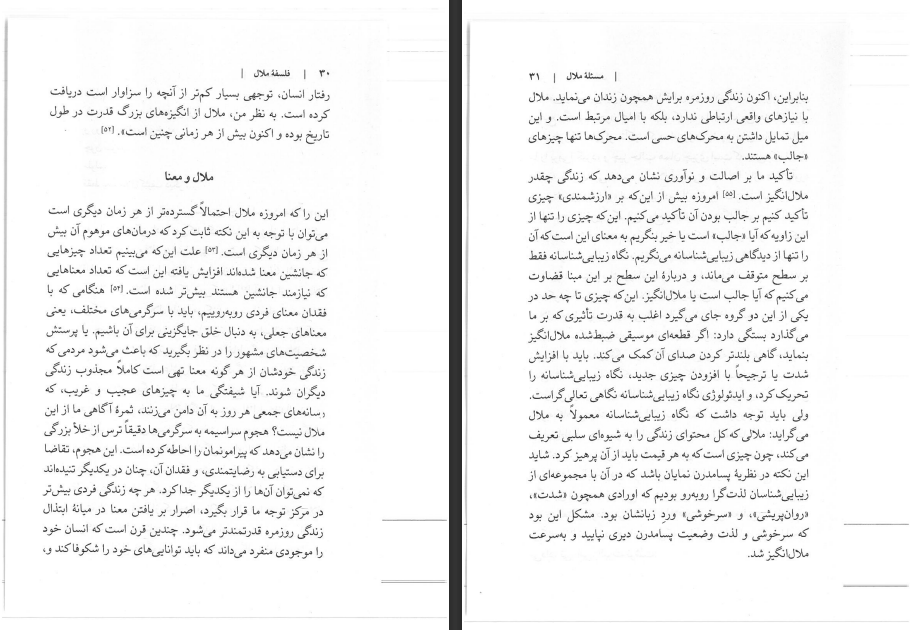 ۳۰ | فلسفهٔ ملال |
رفتار انسان، توجهی بسیار کم‌تر از آنچه را سزاوار است دریافت
کرده است. به نظر من، ملال از انگیزه‌های بزرگ قدرت در طول
تاریخ بوده و اکنون بیش از هر زمانی چنین است». [۵۲]
ملال و معنا
این را که امروزه ملال احتمالاً گسترده‌تر از هر زمان دیگری است
می‌توان با توجه به این نکته ثابت کرد که درمان‌های موهوم آن بیش
از هر زمان دیگری است. [۵۳] علت این‌که می‌بینیم تعداد چیزهایی
که جانشین معنا شده‌اند افزایش یافته این است که تعداد معناهایی
که نیازمند جانشین هستند بیش‌تر شده است. [۵۴] هنگامی که با
فقدان معنای فردی روبه‌روییم، باید با سرگرمی‌های مختلف، یعنی
معناهای جعلی، به دنبال خلق جایگزینی برای آن باشیم. یا پرستش
شخصیت‌های مشهور را در نظر بگیرید که باعث می‌شود مردمی که
زندگی خودشان از هر گونه معنا تهی است کاملاً مجذوب زندگی
دیگران شوند. آیا شیفتگی ما به چیزهای عجیب و غریب، که
رسانه‌های جمعی هر روز به آن دامن می‌زنند، ثمرهٔ آگاهی ما از این
ملال نیست؟ هجوم سراسیمه به سرگرمی‌ها دقیقاً ترس از خلأ بزرگی
را نشان می‌دهد که پیرامونمان را احاطه کرده است. این هجوم، تقاضا
برای دستیابی به رضایتمندی، و فقدان آن، چنان در یکدیگر تنیده‌اند
که نمی‌توان آن‌ها را از یکدیگر جدا کرد. هر چه زندگی فردی بیش‌تر
در مرکز توجه ما قرار بگیرد، اصرار بر یافتن معنا در میانهٔ ابتذال
زندگی روزمره قدرتمندتر می‌شود. چندین قرن است که انسان خود
را موجودی منفرد می‌داند که باید توانایی‌های خود را شکوفا کند و،
| مسئلهٔ ملال | ۳۱
بنابراین، اکنون زندگی روزمره برایش همچون زندان می‌نماید. ملال
با نیازهای واقعی ارتباطی ندارد، بلکه با امیال مرتبط است. و این
میل تمایل داشتن به محرک‌های حسی است. محرک‌ها تنها چیزهای
«جالب» هستند.
تأکید ما بر اصالت و نوآوری نشان می‌دهد که زندگی چقدر
ملال‌انگیز است. [۵۵] امروزه بیش از این‌که بر «ارزشمندی» چیزی
تأکید کنیم بر جالب بودن آن تأکید می‌کنیم. این‌که چیزی را تنها از
این زاویه که آیا «جالب» است یا خیر بنگریم به معنای این است که آن
را تنها از دیدگاهی زیبایی‌شناسانه می‌نگریم. نگاه زیبایی‌شناسانه فقط
بر سطح متوقف می‌ماند، و دربارهٔ این سطح بر این مبنا قضاوت
می‌کنیم که آیا جالب است یا ملال‌انگیز. این‌که چیزی تا چه حد در
یکی از این دو گروه جای می‌گیرد اغلب به قدرت تأثیری که بر ما
می‌گذارد بستگی دارد: اگر قطعه‌ای موسیقی ضبط‌شده ملال‌انگیز
بنماید، گاهی بلندتر کردن صدای آن کمک می‌کند. باید با افزایش
شدت یا ترجیحاً با افزودن چیزی جدید، نگاه زیبایی‌شناسانه را
تحریک کرد، و ایدئولوژی نگاه زیبایی‌شناسانه نگاهی تعالی‌گراست.
ولی باید توجه داشت که نگاه زیبایی‌شناسانه معمولاً به ملال
می‌گراید: ملالی که کل محتوای زندگی را به شیوه‌ای سلبی تعریف
می‌کند، چون چیزی است که به هر قیمت باید از آن پرهیز کرد. شاید
این نکته در نظریهٔ پسامدرن نمایان باشد که در آن با مجموعه‌ای از
زیبایی‌شناسان لذت‌گرا روبه‌رو بودیم که اورادی همچون «شدت»،
«روان‌پریشی»، و «سرخوشی» وردِ زبانشان بود. مشکل این بود
که سرخوشی و لذت وضعیت پسامدرن دیری نپایید و به‌سرعت
ملال‌انگیز شد.